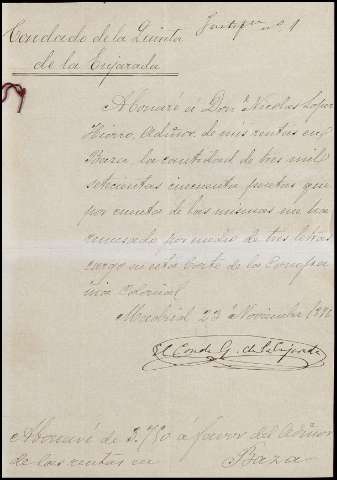 Condado de la Quinta
Justifte nº 1
de la Enjarada
Abonaré á Don Nicolas Lopez
Hierro, Admor. de mis rentas en
Baza, la cantidad de tres mil
setecientas cincuenta pesetas que
por cuenta de las mismas me ha
remesado por medio de tres letras
cargo en esta Corte de la Compa
ñia Colonial.
Madrid 23 Noviembre 1892
El Conde Q. de la Enjarada
Abonaré de 3.750 á favor del Admor
de las rentas en Baza